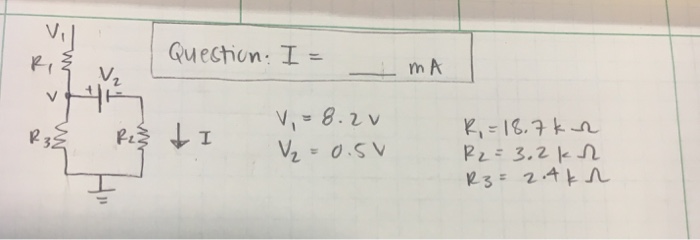 V₁
R₁
V₂
+ -
V
R₃
R₂
↓ I
Question: I = ___ mA
V₁ = 8.2 V
V₂ = 0.5 V
R₁ = 18.7 k Ω
R₂ = 3.2 k Ω
R₃ = 2.4 k Ω